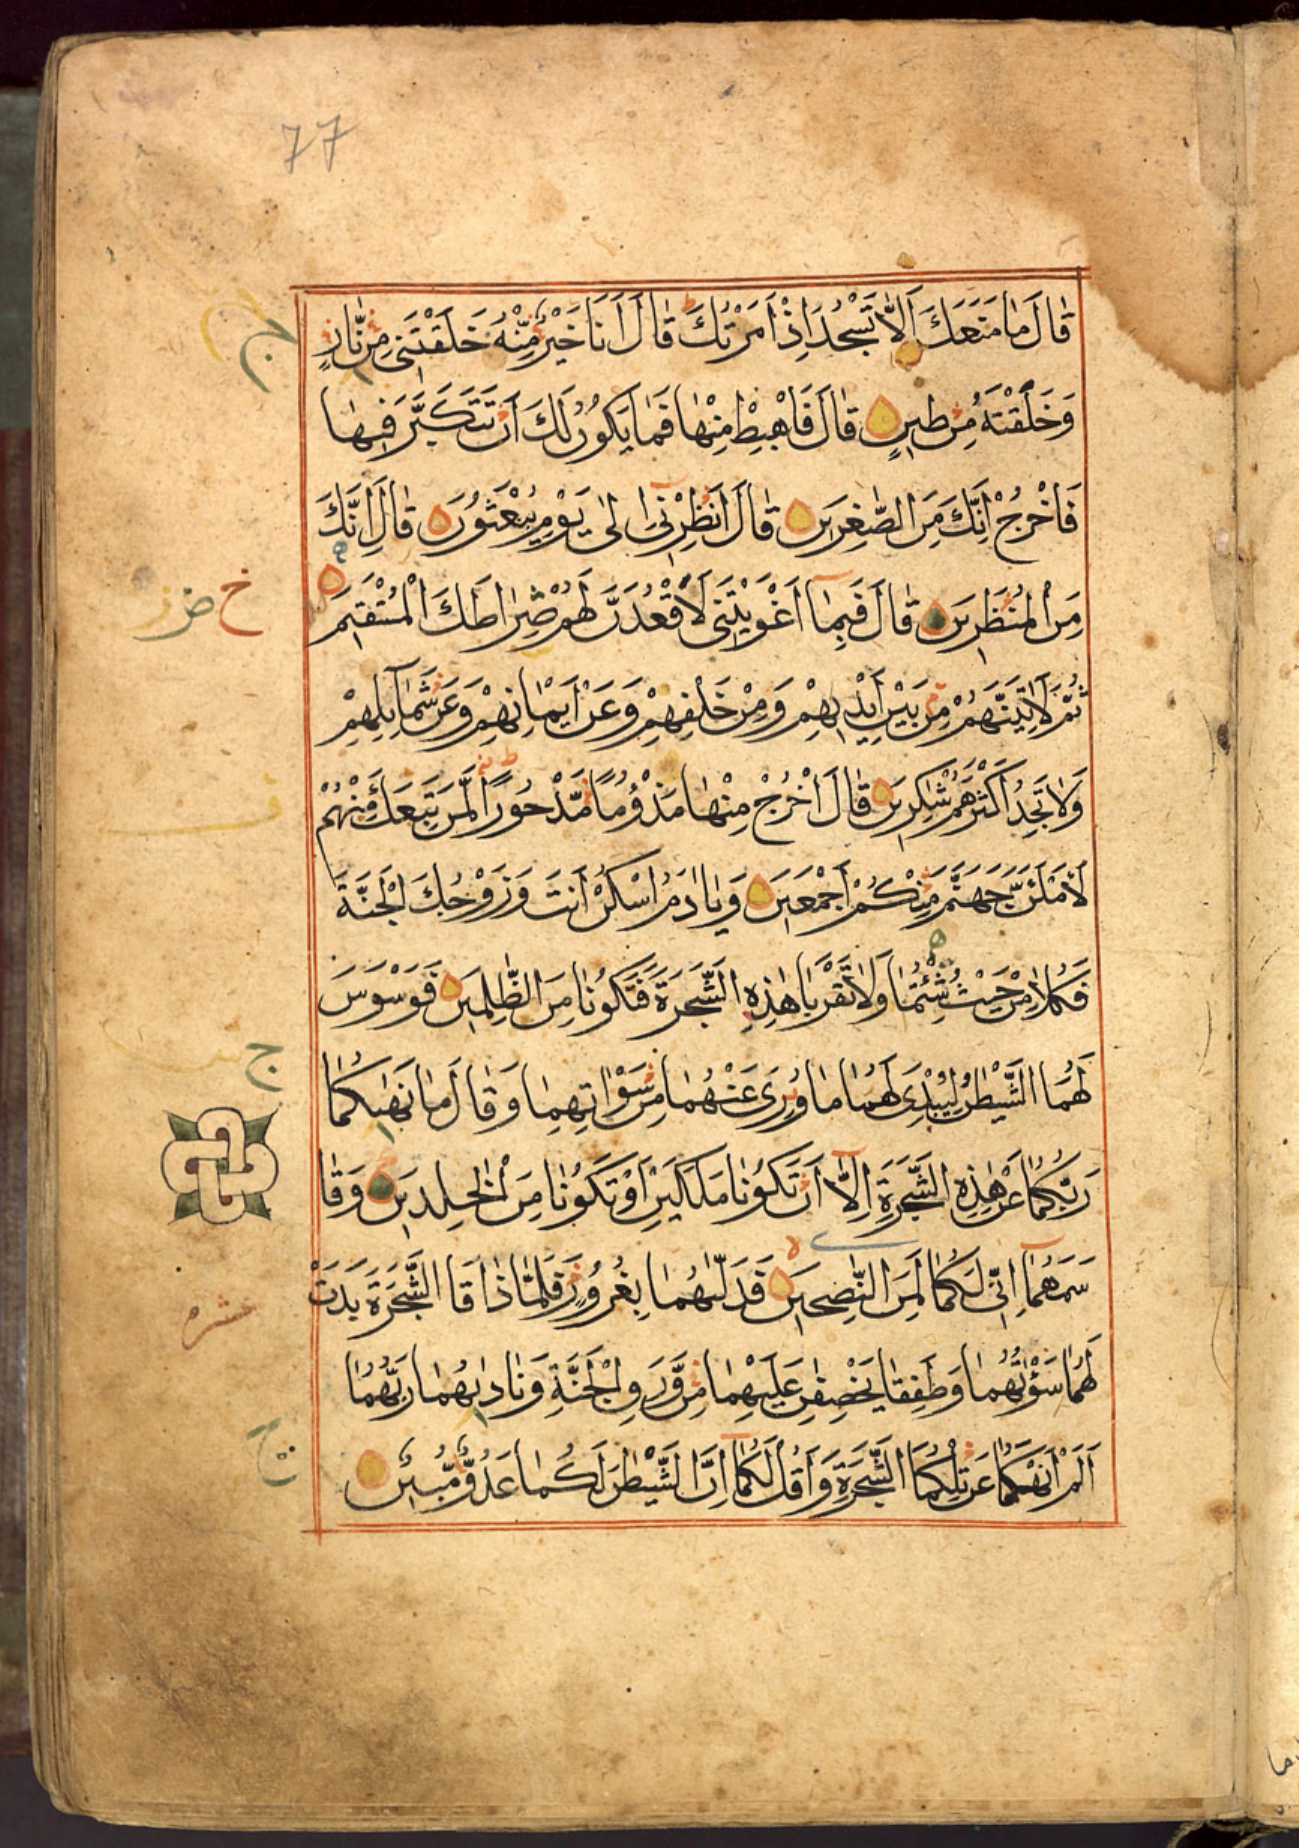 77
قَالَ مَا مَنَعَكَ اَلَّا تَسْجُدَ اِذْ اَمَرْتُكَ قَالَ اَنَا خَيْرٌ مِنْهُ خَلَقْتَنِى مِنْ نَّارٍ
ج
وَخَلَقْتَهُ مِنْ طِينٍ قَالَ فَاهْبِطْ مِنْهَا فَمَا يَكُونُ لَكَ اَنْ تَتَكَبَّرَ فِيهَا
فَاخْرُجْ اِنَّكَ مِنَ الصّٰغِرِينَ قَالَ اَنْظِرْنِى اِلٰى يَوْمِ يُبْعَثُونَ قَالَ اِنَّكَ
مِنَ الْمُنْظَرِينَ قَالَ فَبِمَا اَغْوَيْتَنِى لَاَقْعُدَنَّ لَهُمْ صِرَاطَكَ الْمُسْتَقِيمَ
ثُمَّ لَاٰتِيَنَّهُمْ مِنْ بَيْنِ اَيْدِيهِمْ وَمِنْ خَلْفِهِمْ وَعَنْ اَيْمَانِهِمْ وَعَنْ شَمَآئِلِهِمْ
وَلَا تَجِدُ اَكْثَرَهُمْ شٰكِرِينَ قَالَ اخْرُجْ مِنْهَا مَذْؤُمًا مَّدْحُورًا لَّمَنْ تَبِعَكَ مِنْهُمْ
لَاَمْلَئَنَّ جَهَنَّمَ مِنْكُمْ اَجْمَعِينَ وَيَا اٰدَمُ اسْكُنْ اَنْتَ وَزَوْجُكَ الْجَنَّةَ
فَكُلَا مِنْ حَيْثُ شِئْتُمَا وَلَا تَقْرَبَا هٰذِهِ الشَّجَرَةَ فَتَكُونَا مِنَ الظّٰلِمِينَ فَوَسْوَسَ
ج
لَهُمَا الشَّيْطٰنُ لِيُبْدِىَ لَهُمَا مَا وُرِىَ عَنْهُمَا مِنْ سَوْاٰتِهِمَا وَقَالَ مَا نَهٰيكُمَا
رَبُّكُمَا عَنْ هٰذِهِ الشَّجَرَةِ اِلَّا اَنْ تَكُونَا مَلَكَيْنِ اَوْ تَكُونَا مِنَ الْخٰلِدِينَ وَقَا
سَمَهُمَا اِنِّى لَكُمَا لَمِنَ النّٰصِحِينَ فَدَلّٰيهُمَا بِغُرُورٍ فَلَمَّا ذَاقَا الشَّجَرَةَ بَدَتْ
عشره
لَهُمَا سَوْاٰتُهُمَا وَطَفِقَا يَخْصِفٰنِ عَلَيْهِمَا مِنْ وَّرَقِ الْجَنَّةِ وَنَادٰيهُمَا رَبُّهُمَا
اَلَمْ اَنْهَكُمَا عَنْ تِلْكُمَا الشَّجَرَةِ وَاَقُلْ لَكُمَا اِنَّ الشَّيْطٰنَ لَكُمَا عَدُوٌّ مُّبِينٌ